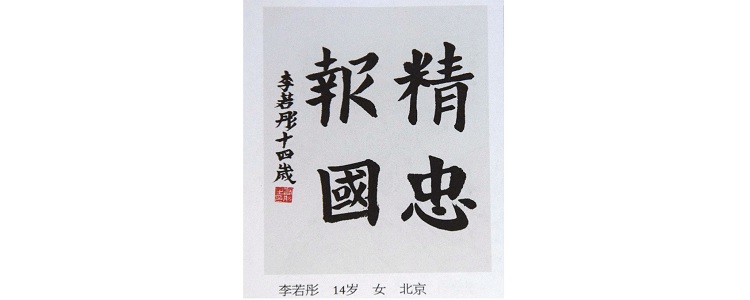 精忠
報國
李若彤十四歲
李若彤 14岁 女 北京